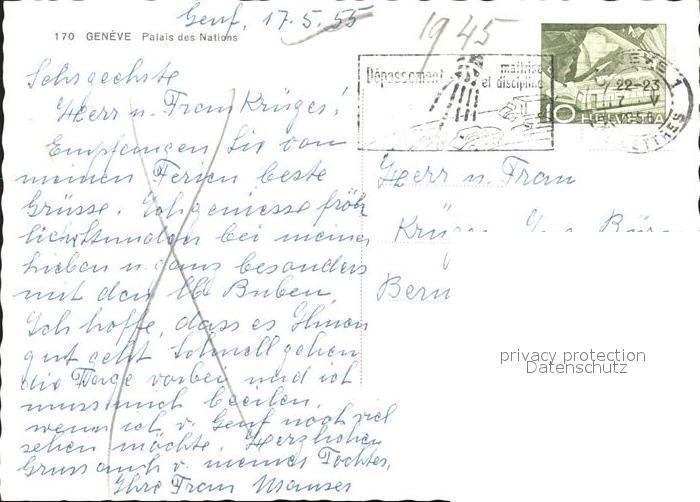 Genf, 17.5.55
1945
170 GENÈVE Palais des Nations
Dépassement maîtrise
et discipline
GENÈVE 1
22-23
17 V
LETTRES
10 HELVETIA
Sehr geehrte
Herr u. Frau Krüger!
Empfangen Sie von
meinen Ferien beste
Grüsse. Ich geniesse fröh
liche Stunden bei meinen
Lieben u. ganz besonders
mit den lb Buben.
Ich hoffe, dass es Ihnen
gut geht. Schnell gehen
die Tage vorbei und ich
muss mich beeilen,
wenn ich v. Genf noch viel
sehen möchte. Herzlichen
Gruss auch v. meiner Tochter,
Ihre Frau
Herr u. Frau
Krüger
Bern
privacy protection
Datenschutz